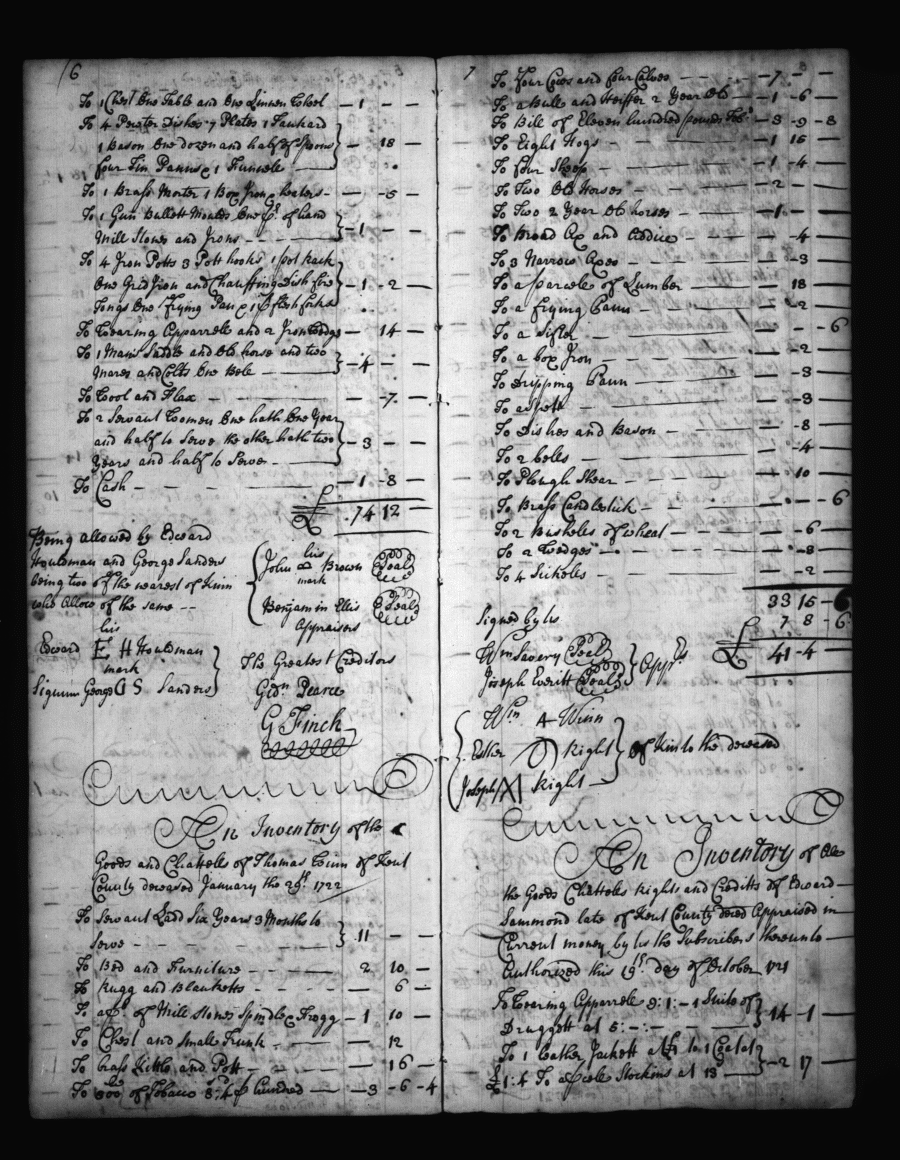 6
To 1 Chest One Table and One Linnen Wheel — 1 — —
To 4 Peuter Dishes 7 Plates 1 Tankard
1 Bason One dozen and half of Spoons — 18 —
four Tin Panns & 1 Funnele
To 1 Brass Morter 1 Box Iron & heaters — — 5 —
To 1 Gun Bullett Moulds One pr. of hand
Mill Stones and Irons — — — 1 — —
To 4 Iron Potts 3 Pott hooks 1 pot rack
One GridIron and Chauffing Dish fire — 1 — 2 —
Tongs One Frying Pan & 1 flesh forke
To Wearing Apparrele and 2 Iron Wedges — 14 —
To 1 Mans Saddle and Old horse and two
Mares and Colts One Bele — — 4 — —
To Wool and Flax — — — 7 —
To 2 Servant Women One hath One Year
and half to Serve the other hath two — 3 — —
Years and half to Serve —
To Cash — — — — 1 — 8 —
£ 74 12 —
Being allowed by Edward
Houldman and George Sanders
being two of the nearest of Kinn
who Allow of the same — —
his
John Brown Seal
mark
Benjamin Ellis Seal
Appraisers
his
Edward E H Houldman
mark
Signum George G S Sanders
The Greatest Creditors
Gidn Pearce
G Finch
An Inventory of the
Goods and Chatteles of Thomas Winn of Kent
County deceased January the 29th 1722
To Servant Ladd Six Years 3 Months to
Serve — — — 11 — —
To Bed and Furniture — — — 2 10 —
To Rugg and Blanketts — — — — 6 —
To a pr. of Mill Stones Spindle & Frogg — 1 10 —
To Chest and Small Trunk — — 12
To brass Kittle and Pott — — 16 —
To 1000 of Tobacco 3:4 p hundred — 3 — 6 — 4
7
To Four Cows and four Calves — — — 7 — —
To a Bull and Heiffer 2 Year Old — 1 — 6 —
To Bill of Eleven hundred pounds Tob — 3 — 9 — 8
To Eight Hogs — — 1 15 —
To four Sheep — — 1 — 4 —
To Two Old Horses — — 2 — —
To Two 2 Year Old horses — — 1 — —
To Broad Ax and Addice — — 4 —
To 3 Narrow Axes — — 3 —
To a parcele of Lumber — — 18 —
To a frying Pann — — 2 —
To a Sifter — — — 6
To a box Iron — — 2 —
To dripping Pann — — 3 —
To a Spitt — — 3 —
To Dishes and Bason — — 8 —
To 2 beles — — 4 —
To Plough Shear — — 10 —
To Brass Candlestick — — — 6
To 2 Bushels of wheat — — 6 —
To 2 Wedges — — 8 —
To 4 Sickels — — 2 —
33 15 — 6
Signed by Us
7 8 — 6
£ 41 — 4 —
Wm Savery Seal
Joseph Everitt Seal
Apprs
Wm A Winn
Esther O Right
Joseph X Right
Of Kin to the deceased
An Inventory of All
the Goods Chatteles Rights and Creditts of Edward
Sammond late of Kent County deced Appraised in
Current money by Us the Subscribers thereunto
Authorized this 19th day of October 1721
To Wearing Apparrele 9:1:— 1 Suite of
Druggett at 5:—:— — — 14 — 1 —
To 1 Leather Jackett at to 1 Coat at
£1:4 To a pcele Stockins at 13 — 2 17 —